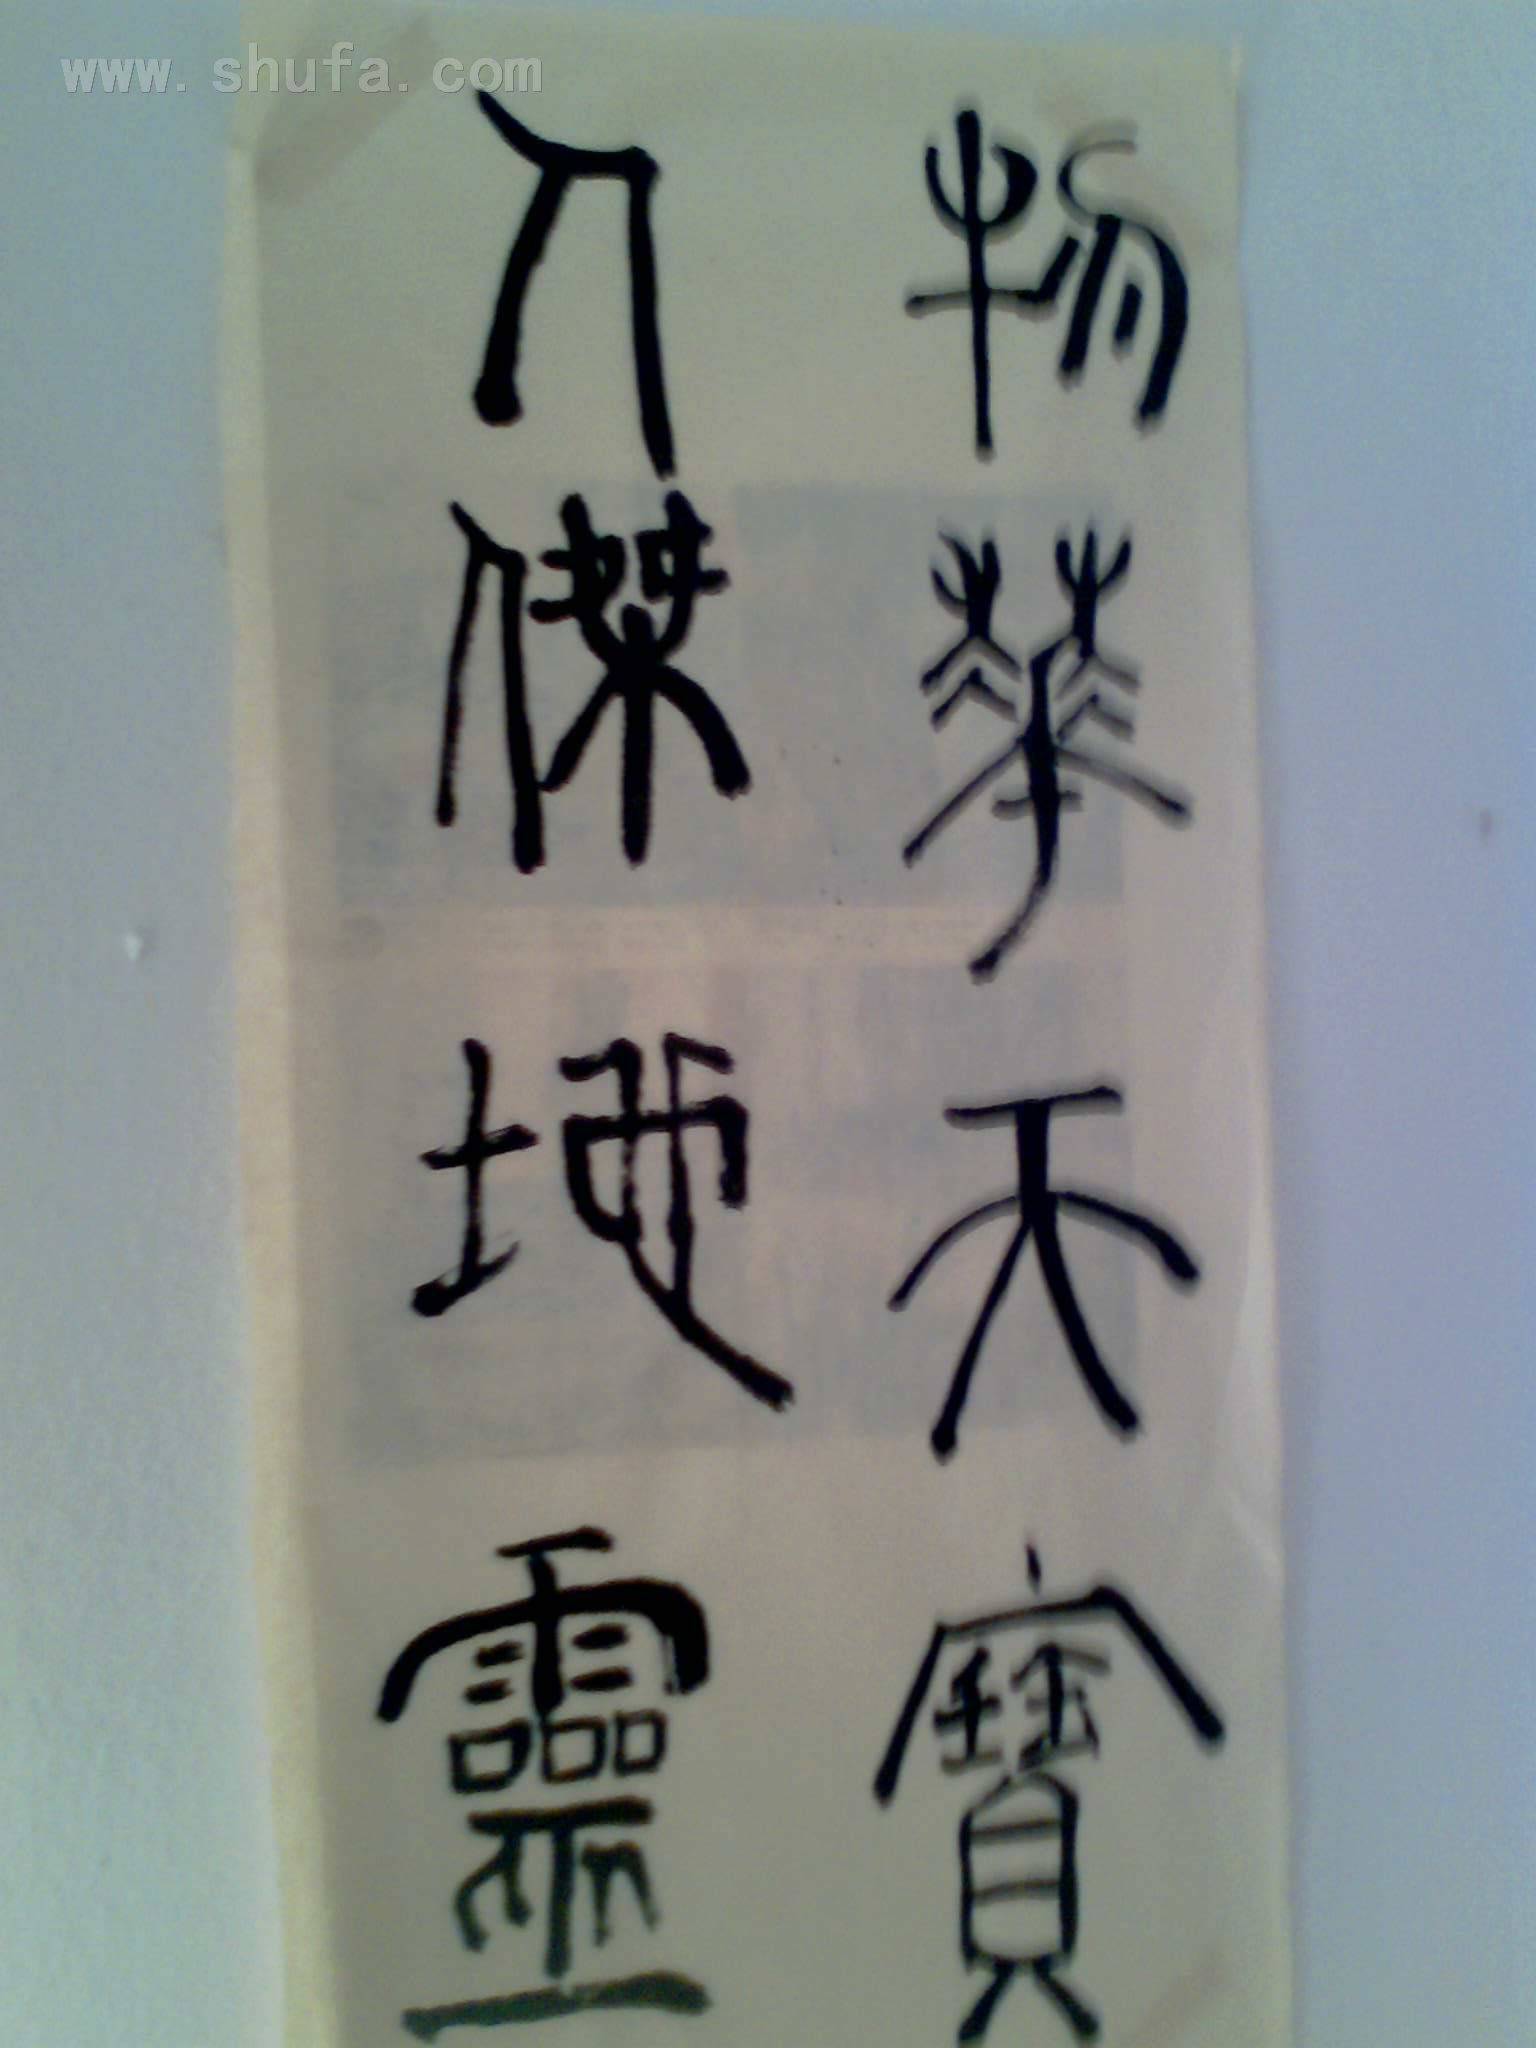 www.shufa.com
物華天寶
人傑地靈